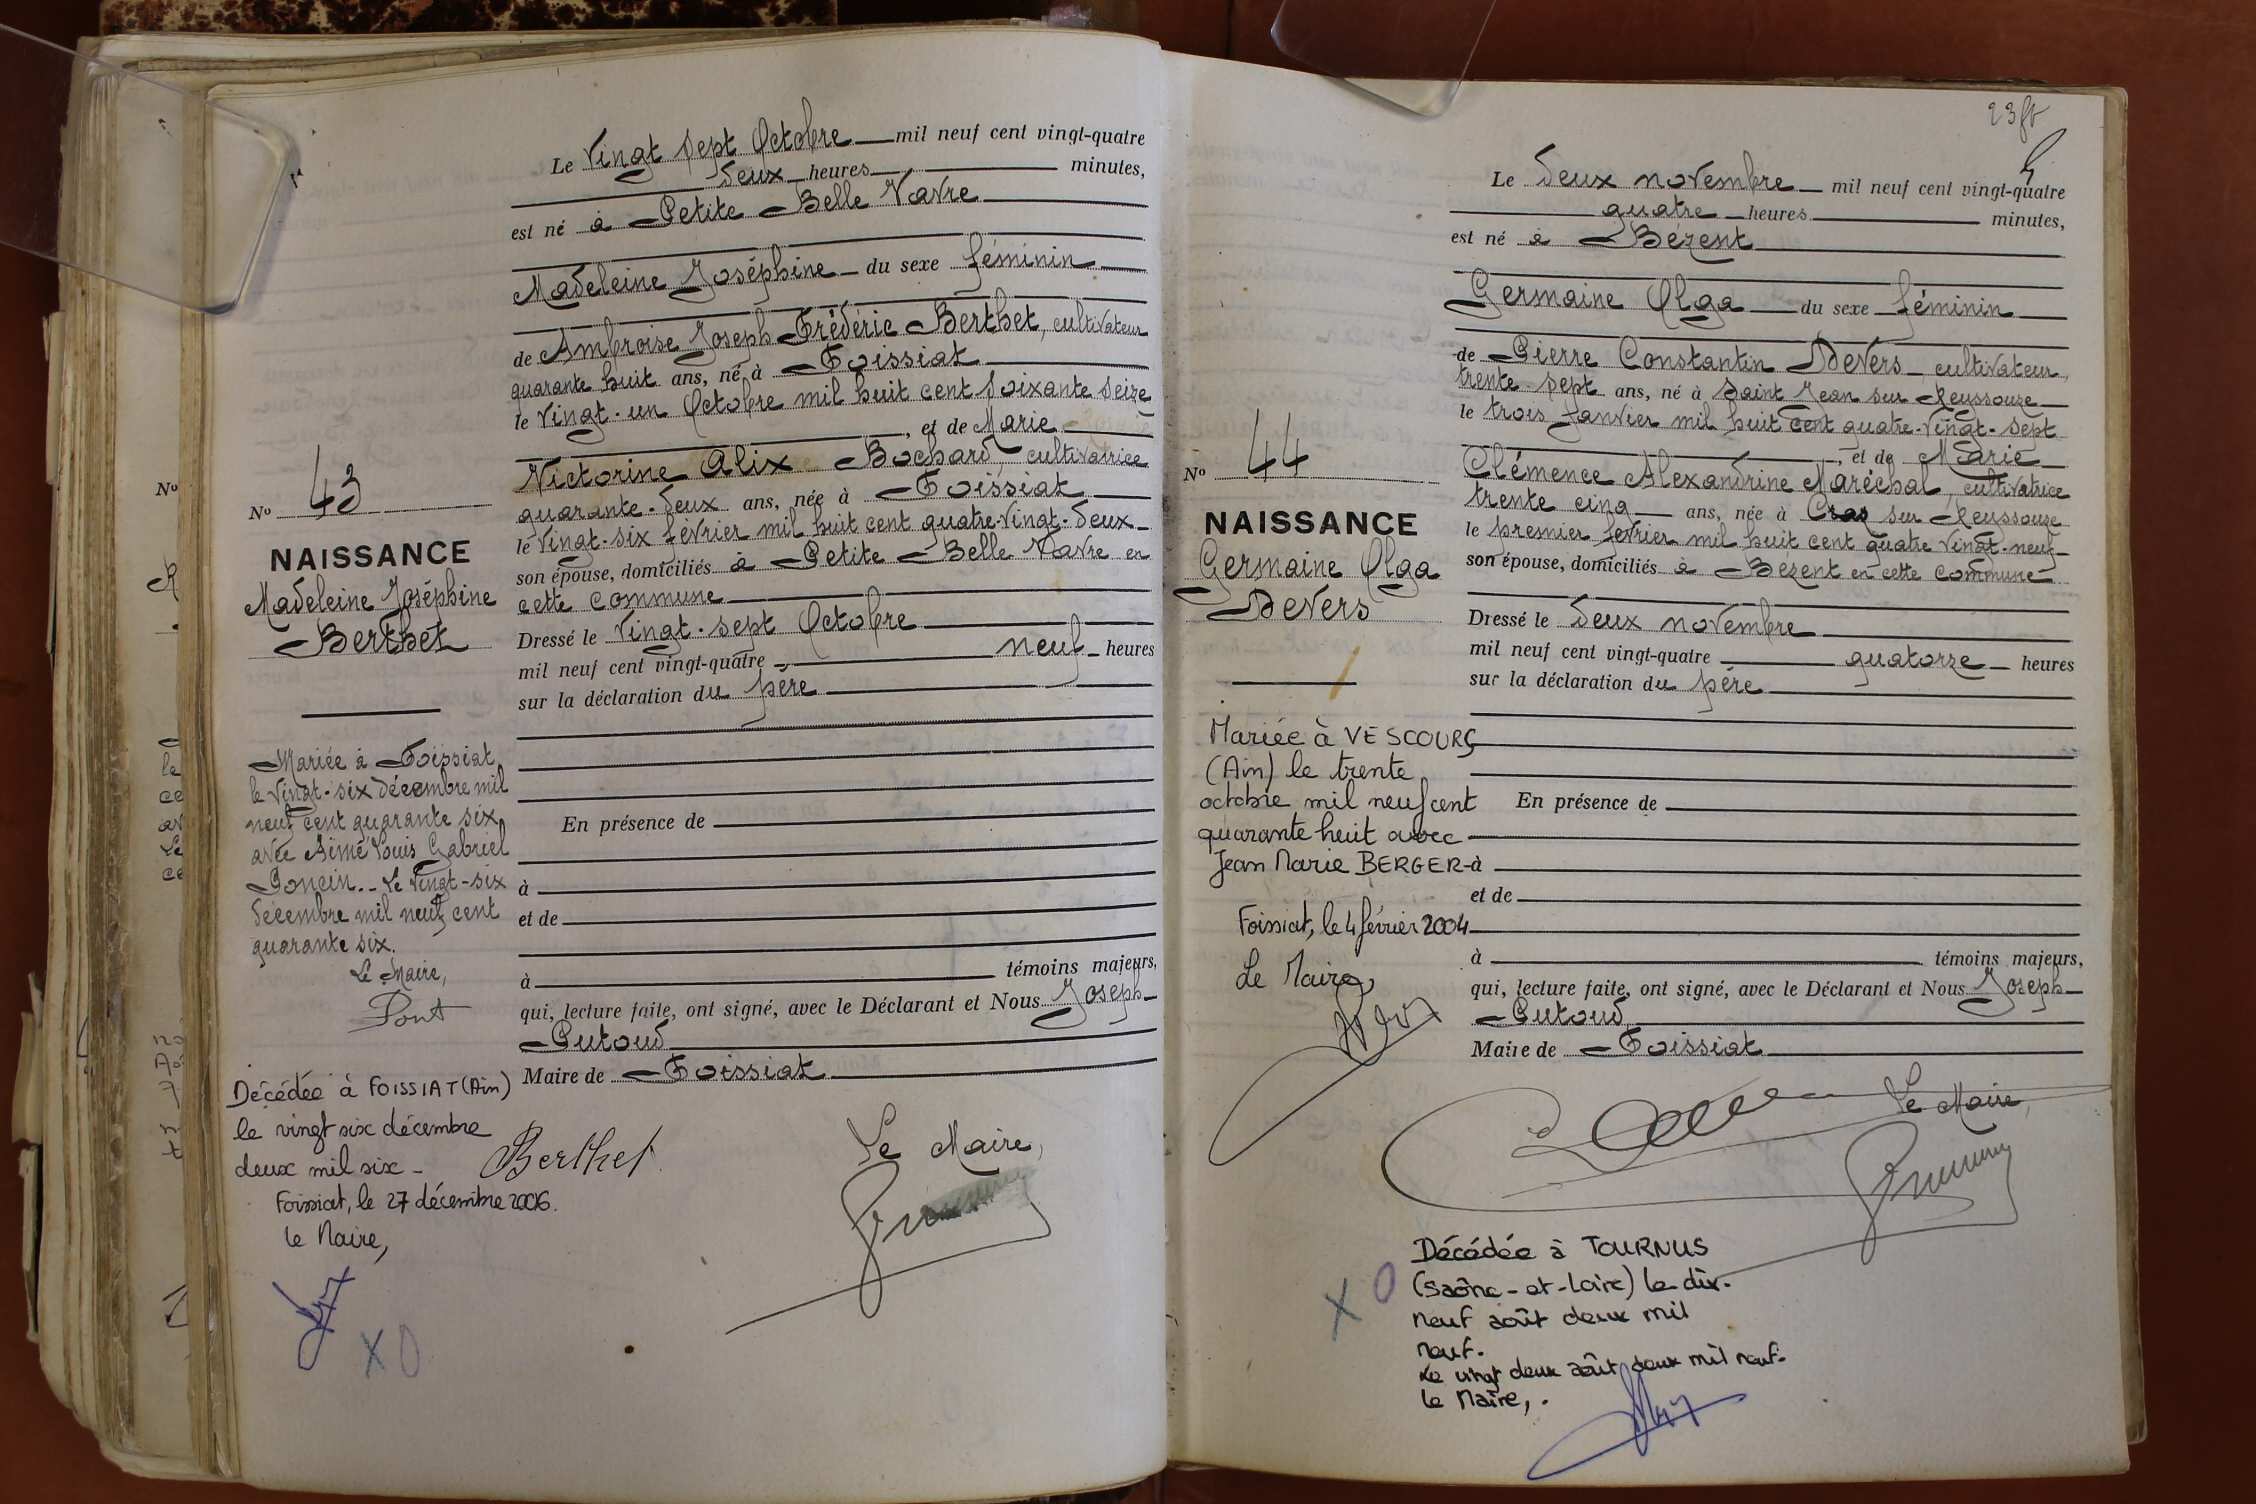 Le Vingt sept Octobre mil neuf cent vingt-quatre
deux heures minutes,
est né à Petite Belle Vavre
Madeleine Joséphine du sexe féminin
de Ambroise Joseph Frédéric Berthet, cultivateur
quarante huit ans, né à Foissiat
le vingt-un Octobre mil huit cent soixante seize
, et de Marie
Victorine Alix Bochard, cultivatrice
quarante-deux ans, née à Foissiat
le vingt-six février mil huit cent quatre-vingt-deux
son épouse, domiciliés à Petite Belle Vavre en
cette commune
Dressé le vingt-sept Octobre
mil neuf cent vingt-quatre neuf heures
sur la déclaration du père
En présence de
à
et de
à témoins majeurs,
qui, lecture faite, ont signé, avec le Déclarant et Nous Joseph
Putoud
Maire de Foissiat
Berthet
Le Maire,
No 43
NAISSANCE
Madeleine Joséphine
Berthet
Mariée à Foissiat
le vingt-six décembre mil
neuf cent quarante six
avec Aimé Louis Gabriel
Poncin. Le vingt-six
décembre mil neuf cent
quarante six.
Le Maire,
Pont
Décédée à FOISSIAT (Ain)
le vingt six décembre
deux mil six -
Foissiat, le 27 décembre 2006.
le Maire,
X O
Le deux novembre mil neuf cent vingt-quatre
quatre heures minutes,
est né à Bézent
Germaine Olga du sexe féminin
de Pierre Constantin Devers, cultivateur,
trente-sept ans, né à Saint Jean sur Reyssouze
le trois janvier mil huit cent quatre-vingt-sept
, et de Marie
Clémence Alexandrine Maréchal, cultivatrice
trente cinq ans, née à Cras sur Reyssouze
le premier février mil huit cent quatre vingt-neuf
son épouse, domiciliés à Bézent en cette commune
Dressé le deux novembre
mil neuf cent vingt-quatre quatorze heures
sur la déclaration du père
En présence de
à
et de
à témoins majeurs,
qui, lecture faite, ont signé, avec le Déclarant et Nous Joseph
Putoud
Maire de Foissiat
Le Maire,
No 44
NAISSANCE
Germaine Olga
Devers
Mariée à VESCOURS
(Ain) le trente
octobre mil neuf cent
quarante huit avec
Jean Marie BERGER
Foissiat, le 4 février 2004
Le Maire,
X O
Décédée à TOURNUS
(Saône-et-Loire) le dix-
neuf août deux mil
neuf.
Le vingt deux août deux mil neuf.
le Maire,